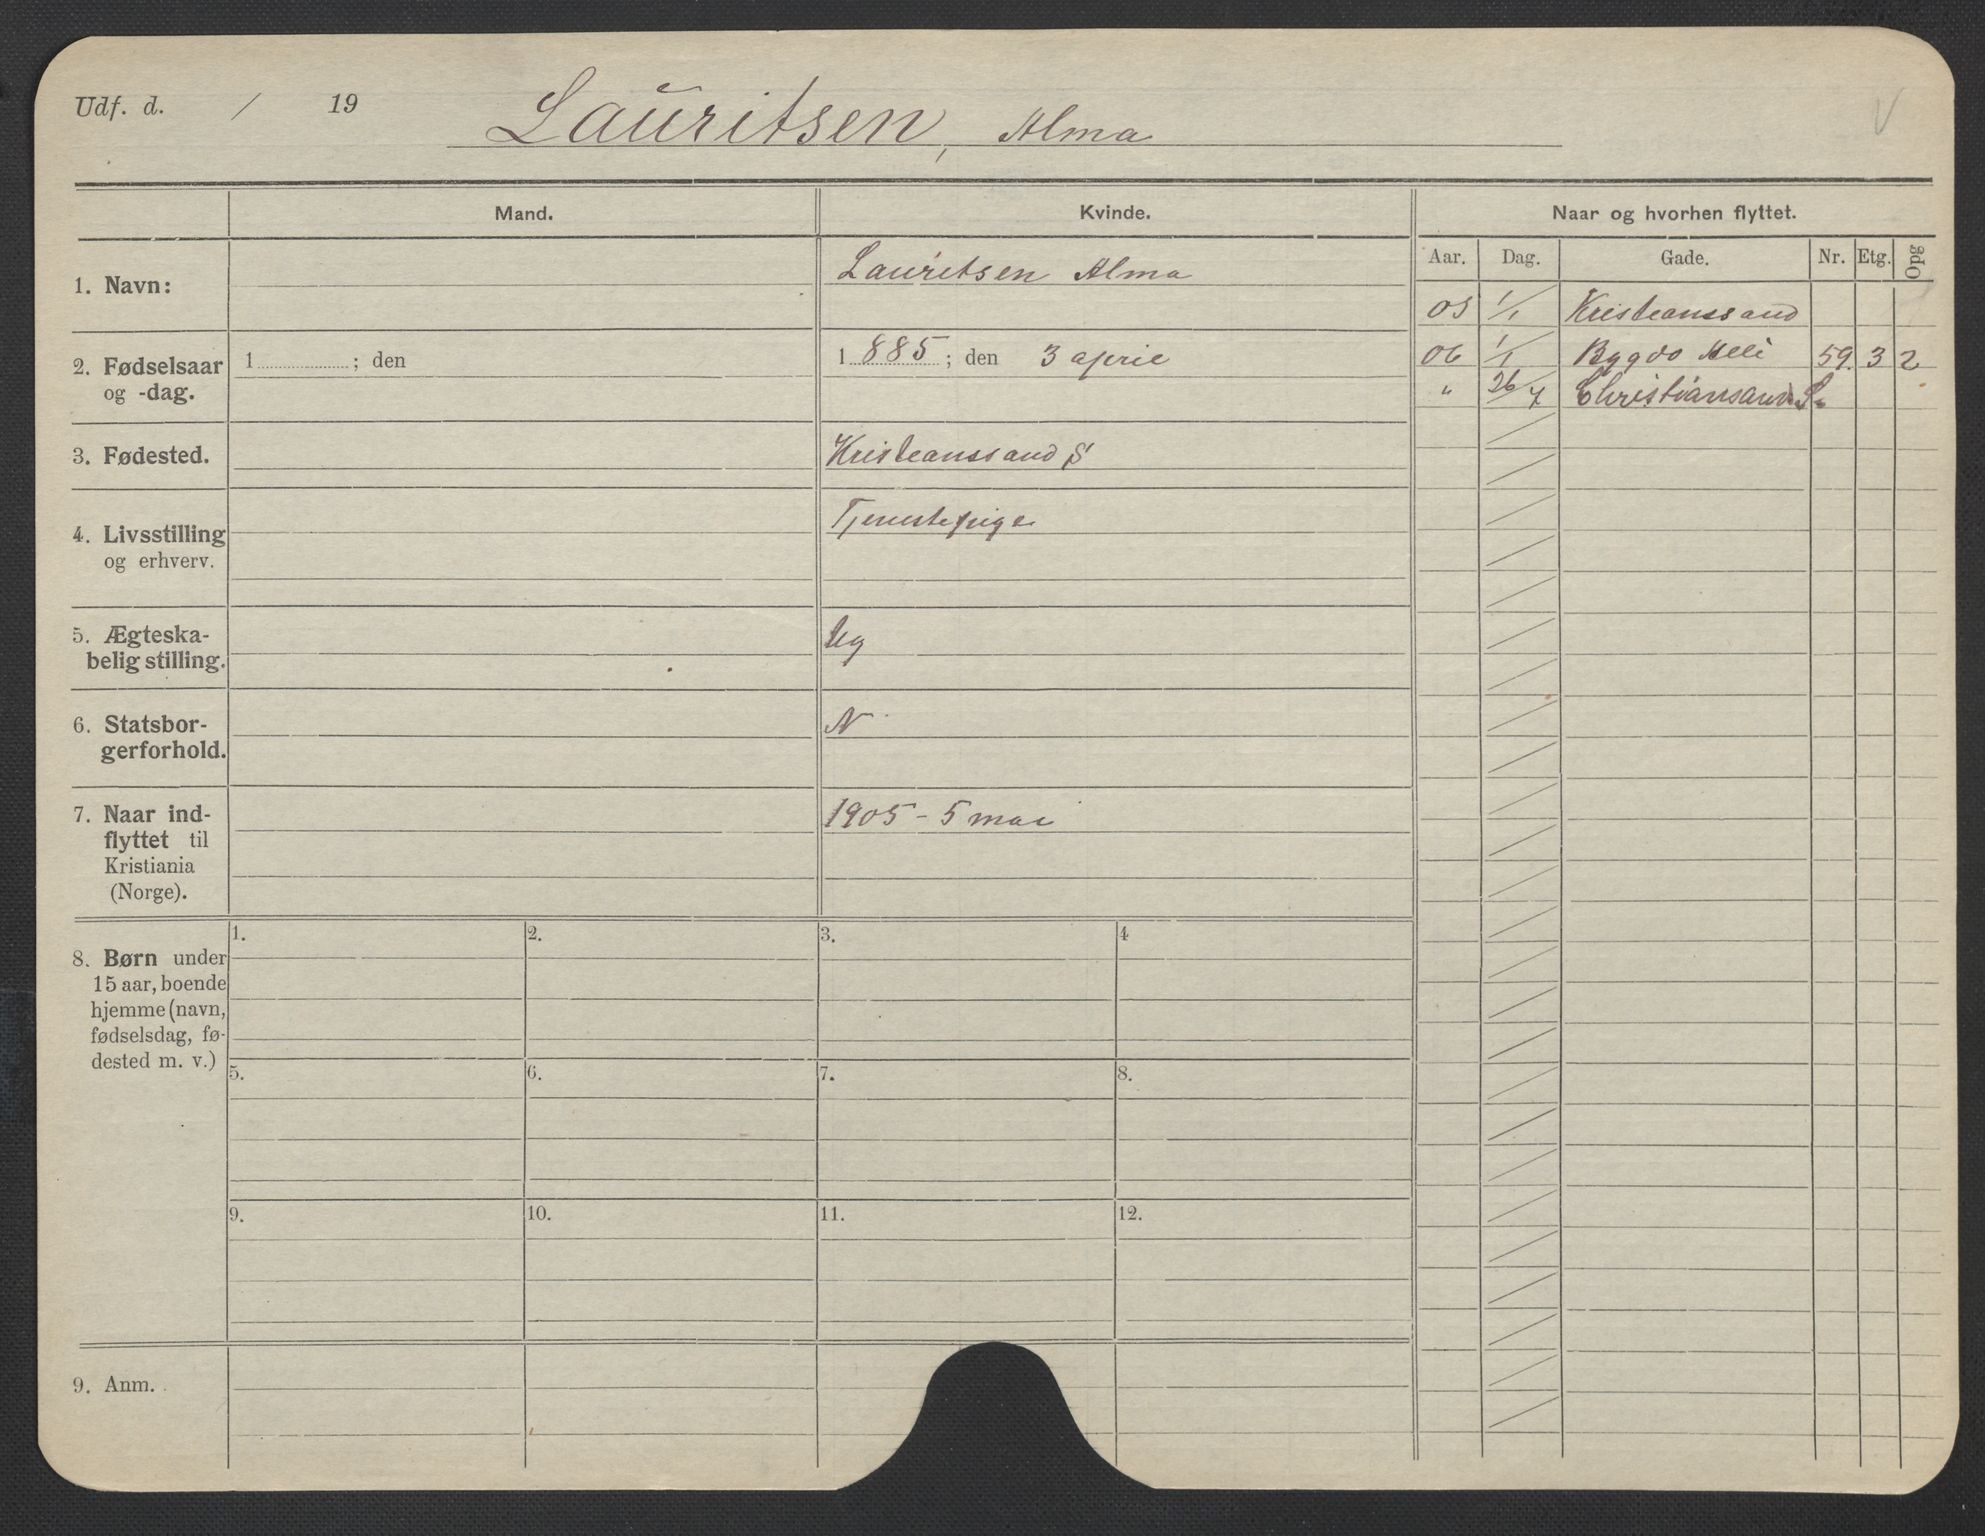 Udf. d. / 19 Lauritsen, Alma
Mand. Kvinde. Naar og hvorhen flyttet.
Aar. Dag. Gade. Nr. Etg. Opg
1. Navn: Lauritsen Alma
05 1/1 Kristianssand
2. Fødselsaar og -dag. 1 ; den 1 885 ; den 3 april
06 1/1 Bygdø Alle 59. 3 2
" 26/4 Christiansand S.
3. Fødested. Kristianssand S
4. Livsstilling og erhverv. Tjenestepige
5. Ægteska-
belig stilling. Ug
6. Statsbor-
gerforhold. N
7. Naar ind-
flyttet til
Kristiania
(Norge). 1905 - 5 mai
8. Børn under
15 aar, boende
hjemme (navn,
fødselsdag, fø-
dested m. v.)
1. 2. 3. 4
5. 6. 7. 8.
9. 10. 11. 12.
9. Anm.